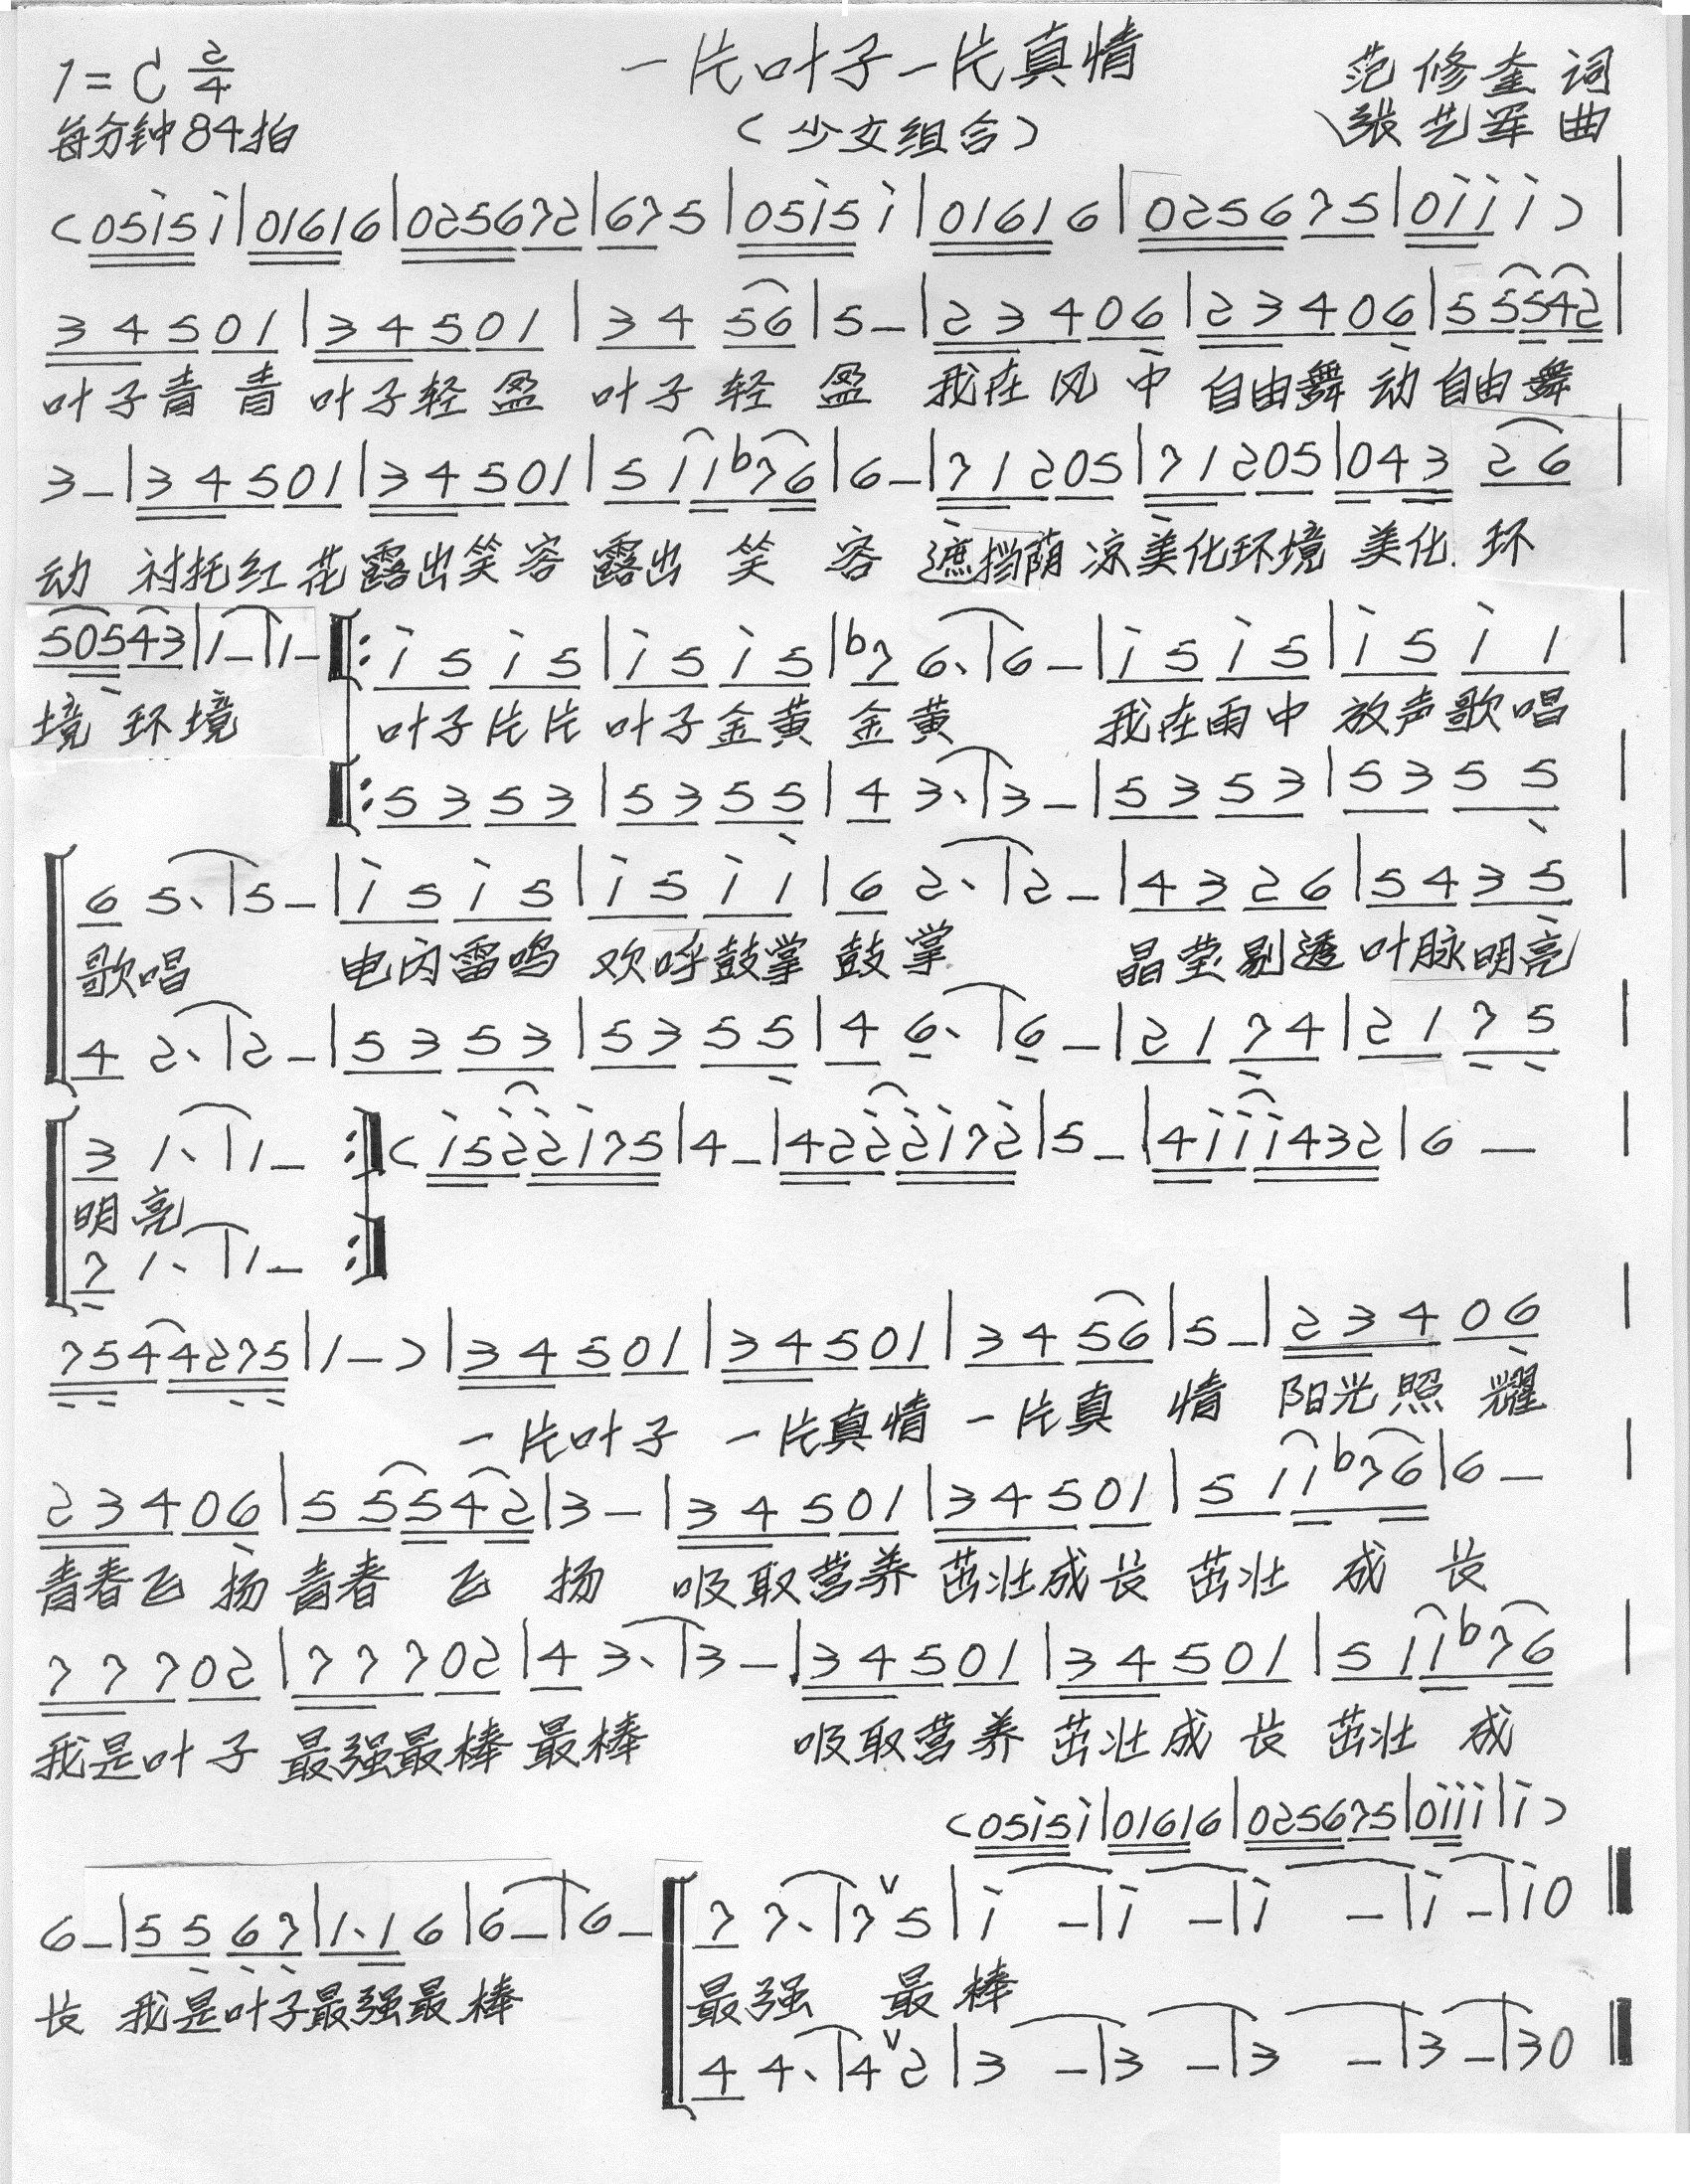 一片叶子一片真情
1=C 2/4
范修奎 词
每分钟84拍
(少文组合)
张艺军 曲
(05i5 i|01616|025672|675|05i5 i|01616|025675|0iii)|
34501|34501|3456|5-|23406|23406|555542|
叶子青青 叶子轻盈 叶子轻盈 我在风中 自由舞动自由舞
3-|34501|34501|511b76|6-|71205|71205|043 26|
动 衬托红花露出笑容 露出笑容 遮挡荫凉美化环境 美化.环
50543|1-|1-|:i5i5|i5i5|b76.|6-|i5i5|i5i1|
境 环境 叶子片片 叶子金黄 金黄 我在雨中 放声歌唱
|:5353|5355|43.|3-|5353|5355|
65.|5-|i5i5|i5ii|62.|2-|4326|5435|
歌唱 电闪雷鸣 欢呼鼓掌 鼓掌 晶莹剔透 叶脉明亮
42.|2-|5353|5355|46.|6-|2174|2175|
31.|1- :|(i522i75|4-|4222i72|5-|4iii432|6-|
明亮
71.|1- :|
7544275|1-)|34501|34501|3456|5-|23406|
一片叶子 一片真情 一片真情 阳光照耀
23406|555542|3-|34501|34501|511b76|6-|
青春飞扬 青春飞扬 吸取营养 茁壮成长 茁壮成长
77702|77702|43.|3-|34501|34501|511b76|
我是叶子 最强最棒 最棒 吸取营养 茁壮成长 茁壮成
(05i5i|01616|025675|0iii|i)
6-|5567|1.16|6-|6-|77.|7v5|i-|i-|i-|i-|i0‖
长 我是叶子最强最棒 最强 最棒
44.|4v2|3-|3-|3-|3-|30‖